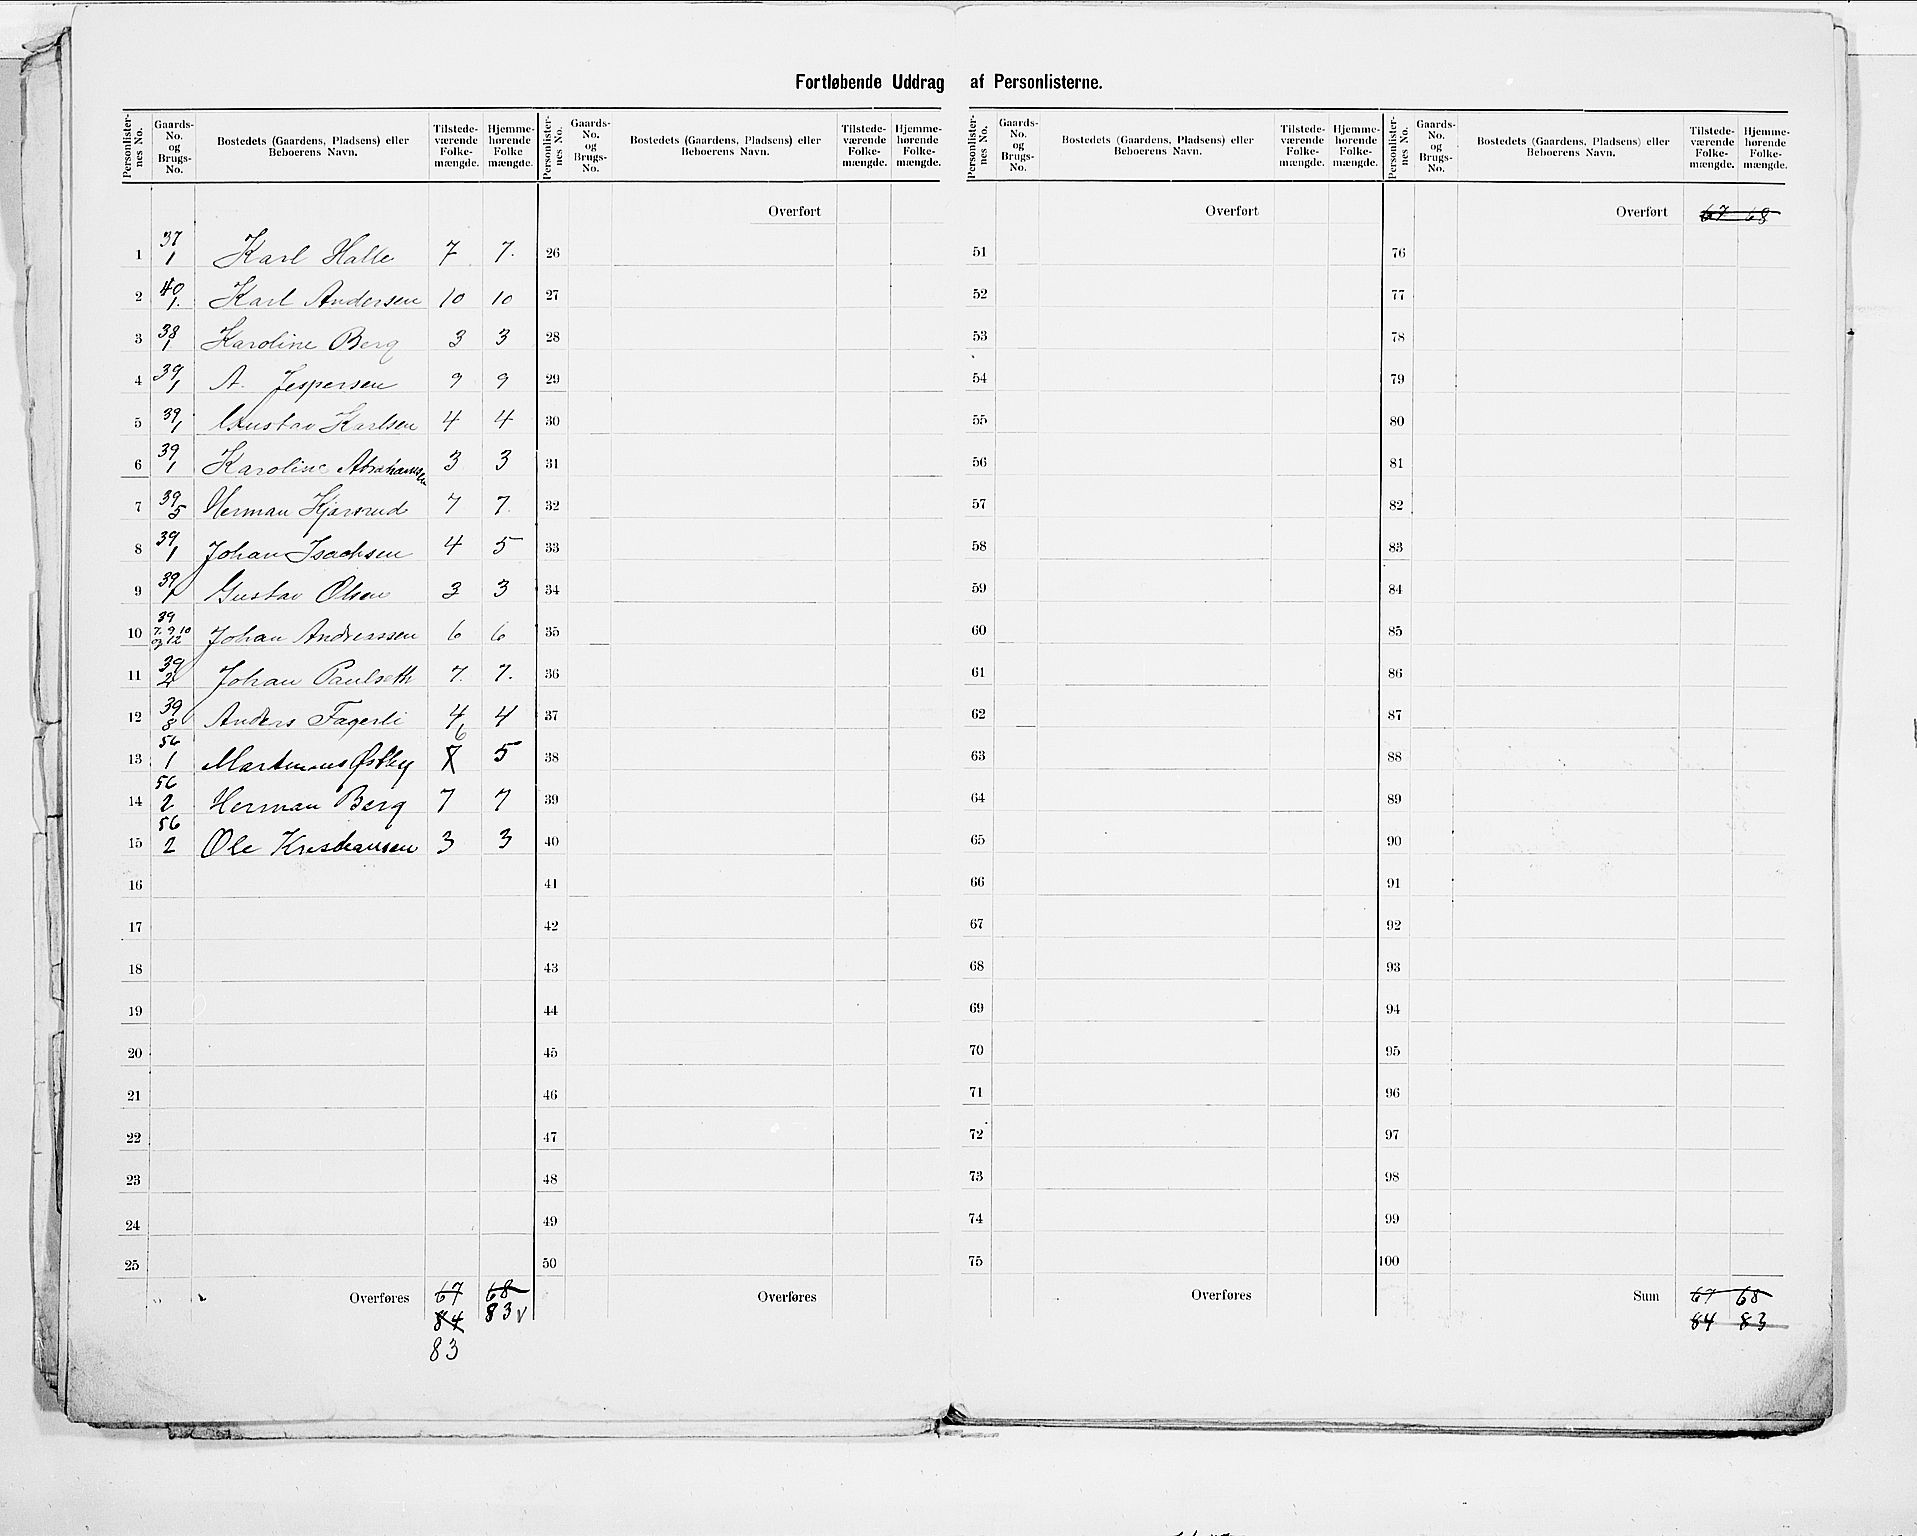 Fortløbende Uddrag af Personlisterne.
Personlisternes No. Gaards-No. og Brugs-No. Bostedets (Gaardens, Pladsens) eller Beboerens Navn. Tilstedeværende Folkemængde. Hjemmehørende Folkemængde.
1 37/1 Karl Halle 7 7.
2 40/1. Karl Andersen 10 10
3 38/1 Karoline Berg 3 3
4 39/1 A. Jespersen 9 9
5 39/1 Gustav Karlsen 4 4
6 39/1 Karoline Abrahamsen 3 3
7 39/5 Herman 7 7.
8 39/1 Johan Isachsen 4 5
9 39/1 Gustav Olsen 3 3
10 39/7, 9, 10 og 12 Johan Andreassen 6 6
11 39/2 Johan Paulseth 7. 7.
12 39/8 Anders Fagerli 4 4
13 56/1 Martinius Østby 7 6 5
14 56/2 Herman Berg 7 7
15 56/2 Ole Kristiansen 3 3
16
17
18
19
20
21
22
23
24
25
Overføres 67 68
84 83 v
83
Personlisternes No. Gaards-No. og Brugs-No. Bostedets (Gaardens, Pladsens) eller Beboerens Navn. Tilstedeværende Folkemængde. Hjemmehørende Folkemængde.
Overført
26
27
28
29
30
31
32
33
34
35
36
37
38
39
40
41
42
43
44
45
46
47
48
49
50
Overføres
Personlisternes No. Gaards-No. og Brugs-No. Bostedets (Gaardens, Pladsens) eller Beboerens Navn. Tilstedeværende Folkemængde. Hjemmehørende Folkemængde.
Overført
51
52
53
54
55
56
57
58
59
60
61
62
63
64
65
66
67
68
69
70
71
72
73
74
75
Overføres
Personlisternes No. Gaards-No. og Brugs-No. Bostedets (Gaardens, Pladsens) eller Beboerens Navn. Tilstedeværende Folkemængde. Hjemmehørende Folkemængde.
Overført 67 68
76
77
78
79
80
81
82
83
84
85
86
87
88
89
90
91
92
93
94
95
96
97
98
99
100
Sum 67 68
84 83